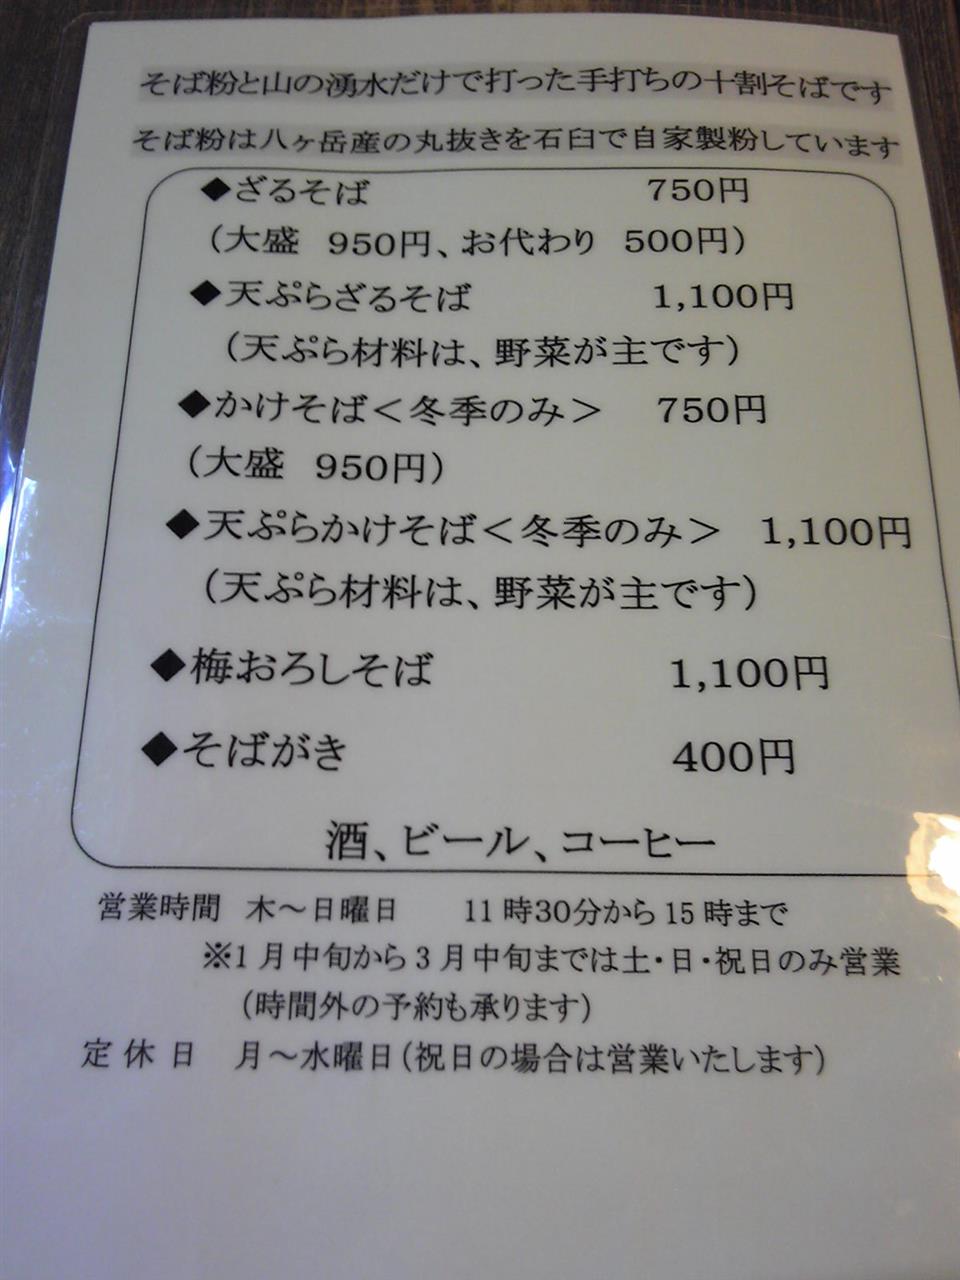 そば粉と山の湧水だけで打った手打ちの十割そばです
そば粉は八ヶ岳産の丸抜きを石臼で自家製粉しています
◆ざるそば 750円
（大盛 950円、お代わり 500円）
◆天ぷらざるそば 1,100円
（天ぷら材料は、野菜が主です）
◆かけそば＜冬季のみ＞ 750円
（大盛 950円）
◆天ぷらかけそば＜冬季のみ＞ 1,100円
（天ぷら材料は、野菜が主です）
◆梅おろしそば 1,100円
◆そばがき 400円
酒、ビール、コーヒー
営業時間 木～日曜日 11時30分から15時まで
※1月中旬から3月中旬までは土・日・祝日のみ営業
（時間外の予約も承ります）
定休日 月～水曜日（祝日の場合は営業いたします）